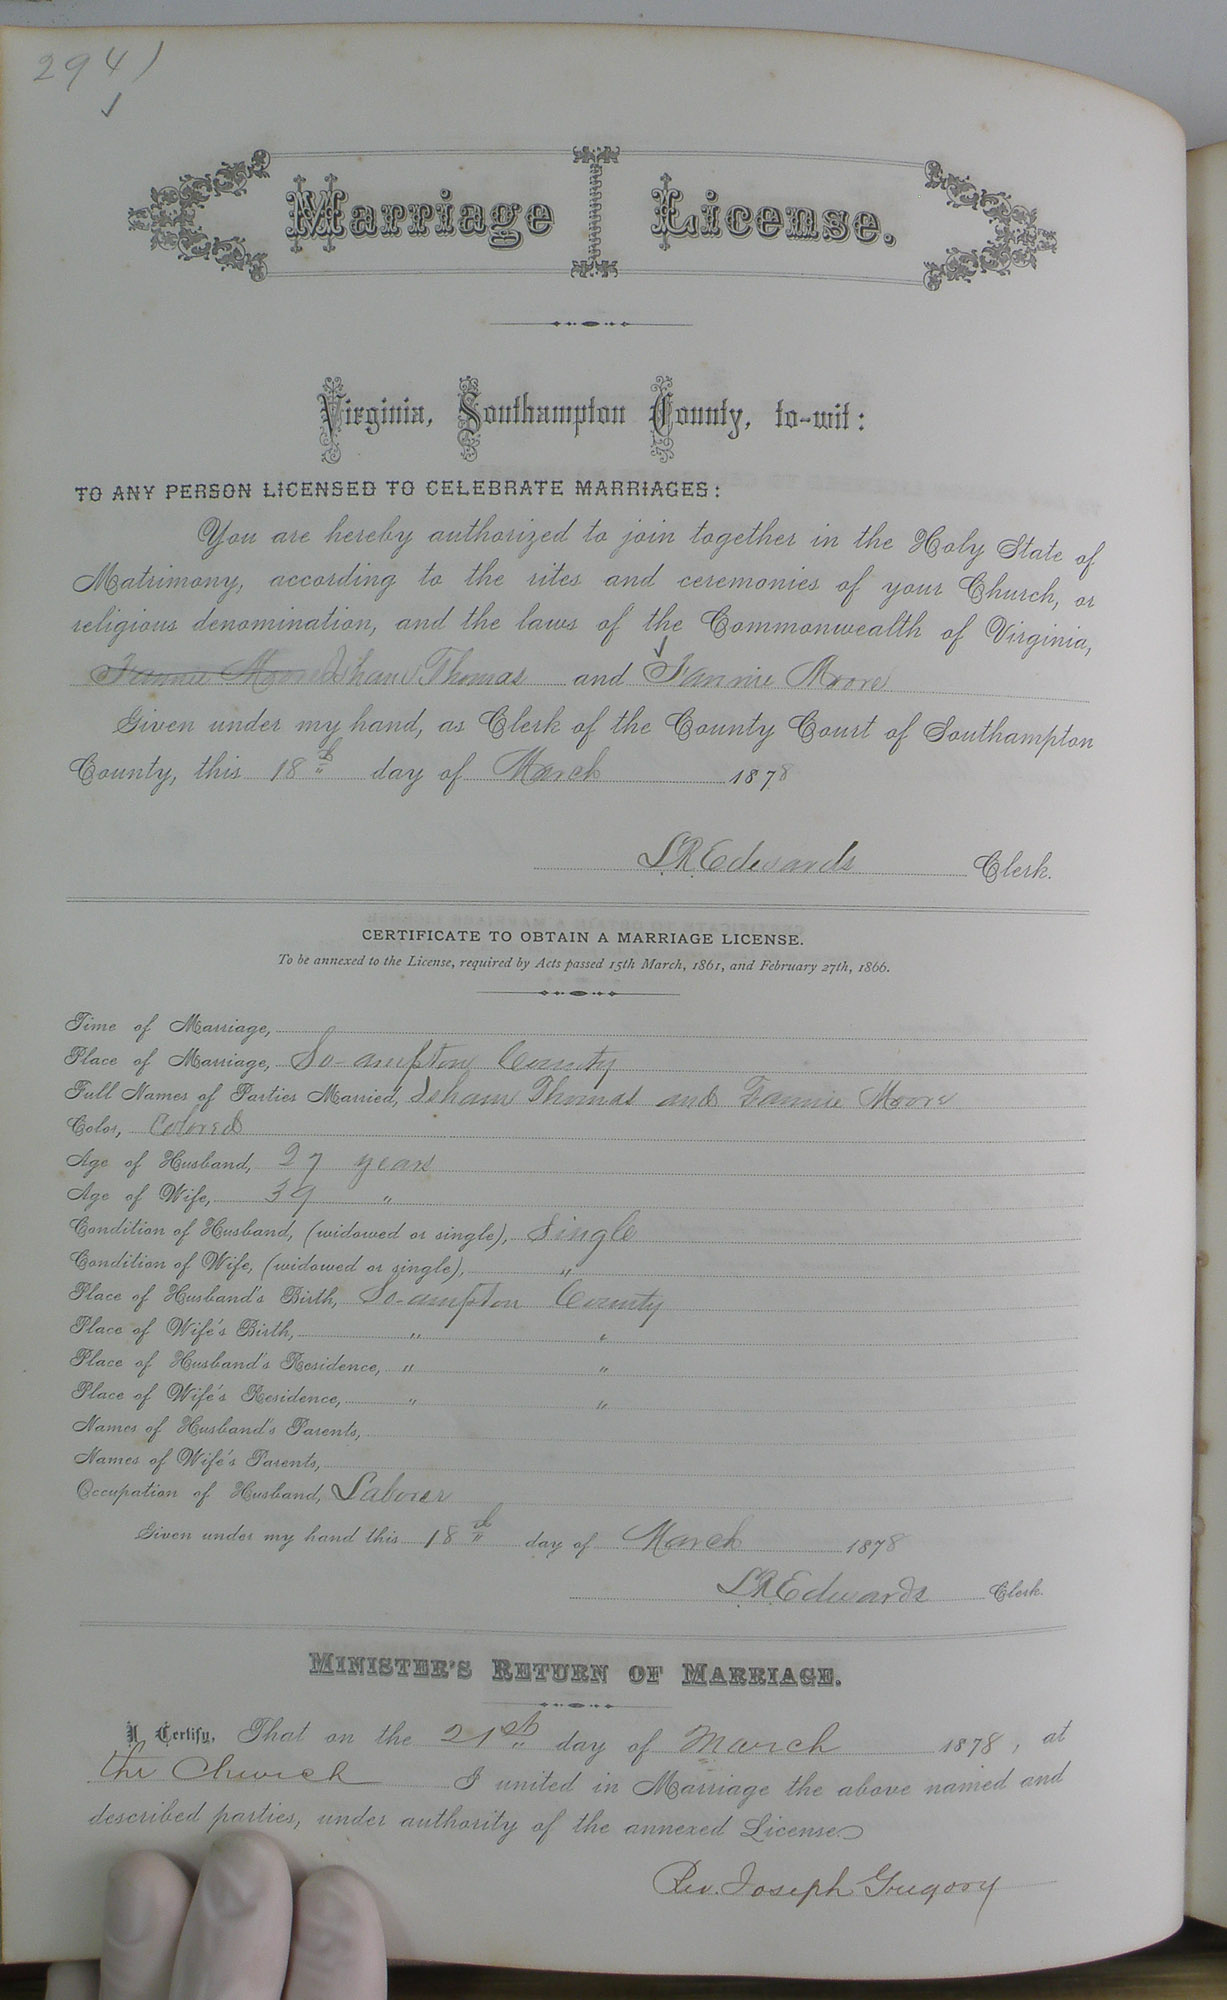 2941
Marriage License.
Virginia, Southampton County, to-wit:
TO ANY PERSON LICENSED TO CELEBRATE MARRIAGES:
You are hereby authorized to join together in the Holy State of
Matrimony, according to the rites and ceremonies of your Church, or
religious denomination, and the laws of the Commonwealth of Virginia,
Fannie Moore Isham Thomas and Fannie Moore
Given under my hand, as Clerk of the County Court of Southampton
County, this 18th day of March 1878
L.R. Edwards Clerk.
CERTIFICATE TO OBTAIN A MARRIAGE LICENSE.
To be annexed to the License, required by Acts passed 15th March, 1861, and February 27th, 1866.
Time of Marriage,
Place of Marriage, So-ampton County
Full Names of Parties Married, Isham Thomas and Fannie Moore
Color, Colored
Age of Husband, 27 years
Age of Wife, 39 "
Condition of Husband, (widowed or single), Single
Condition of Wife, (widowed or single), "
Place of Husband's Birth, So-ampton County
Place of Wife's Birth, " "
Place of Husband's Residence, " "
Place of Wife's Residence, " "
Names of Husband's Parents,
Names of Wife's Parents,
Occupation of Husband, Laborer
Given under my hand this 18th day of March 1878
L.R. Edwards Clerk.
MINISTER'S RETURN OF MARRIAGE.
I Certify, That on the 21st day of March 1878, at
the Church I united in Marriage the above named and
described parties, under authority of the annexed License
Rev. Joseph Gregory